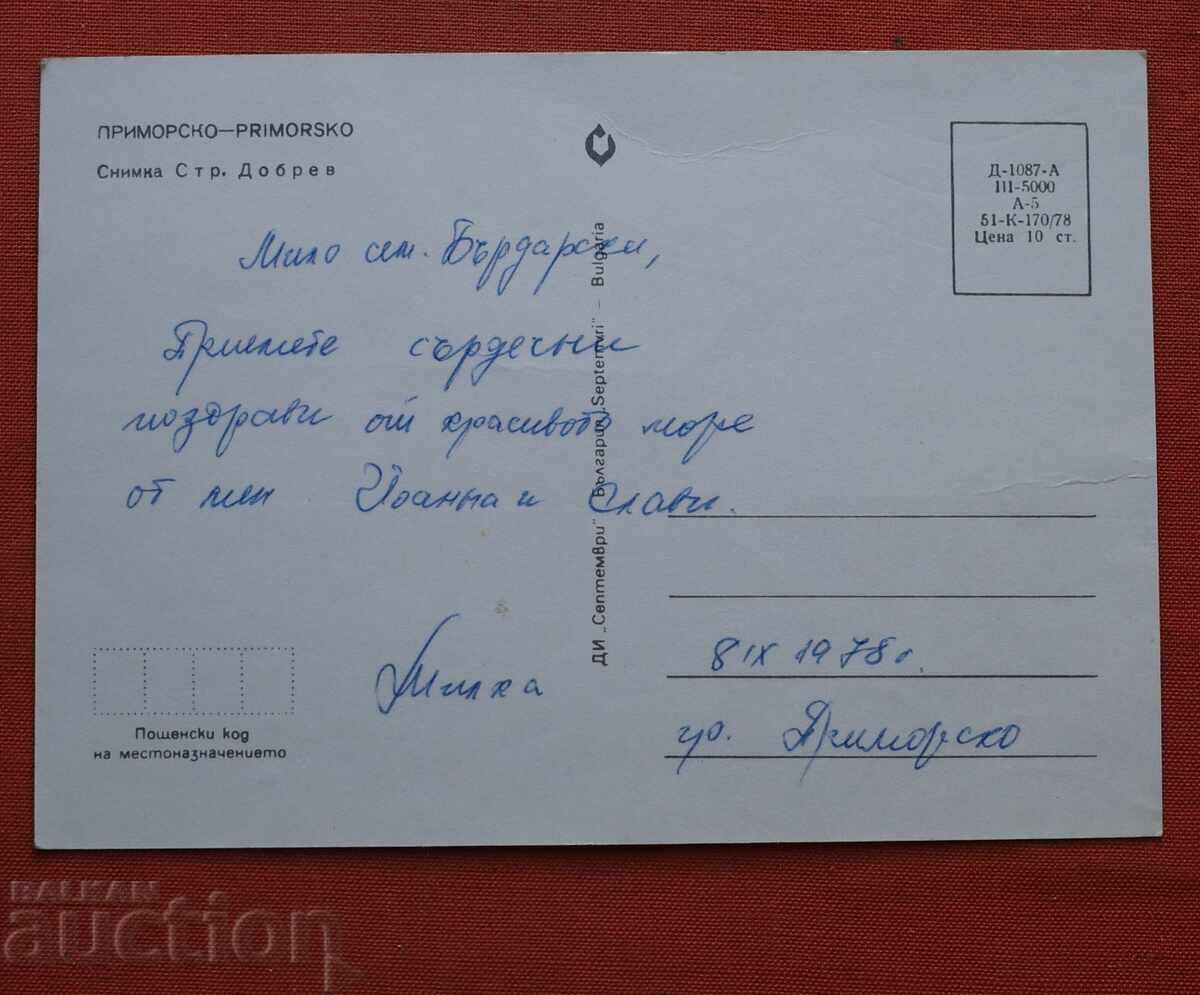 ПРИМОРСКО—PRIMORSKO
Снимка Стр. Добрев
Мило сем. Бърдарски,
Приемете сърдечни
поздрави от красивото море
от мен Йоанна и Слави.
Милка
Пощенски код
на местоназначението
ДИ „Септември" България „Septemvri" – Bulgaria
Д-1087-А
III-5000
А-5
51-К-170/78
Цена 10 ст.
8 IX 1978 г.
гр. Приморско
BALKAN
auction